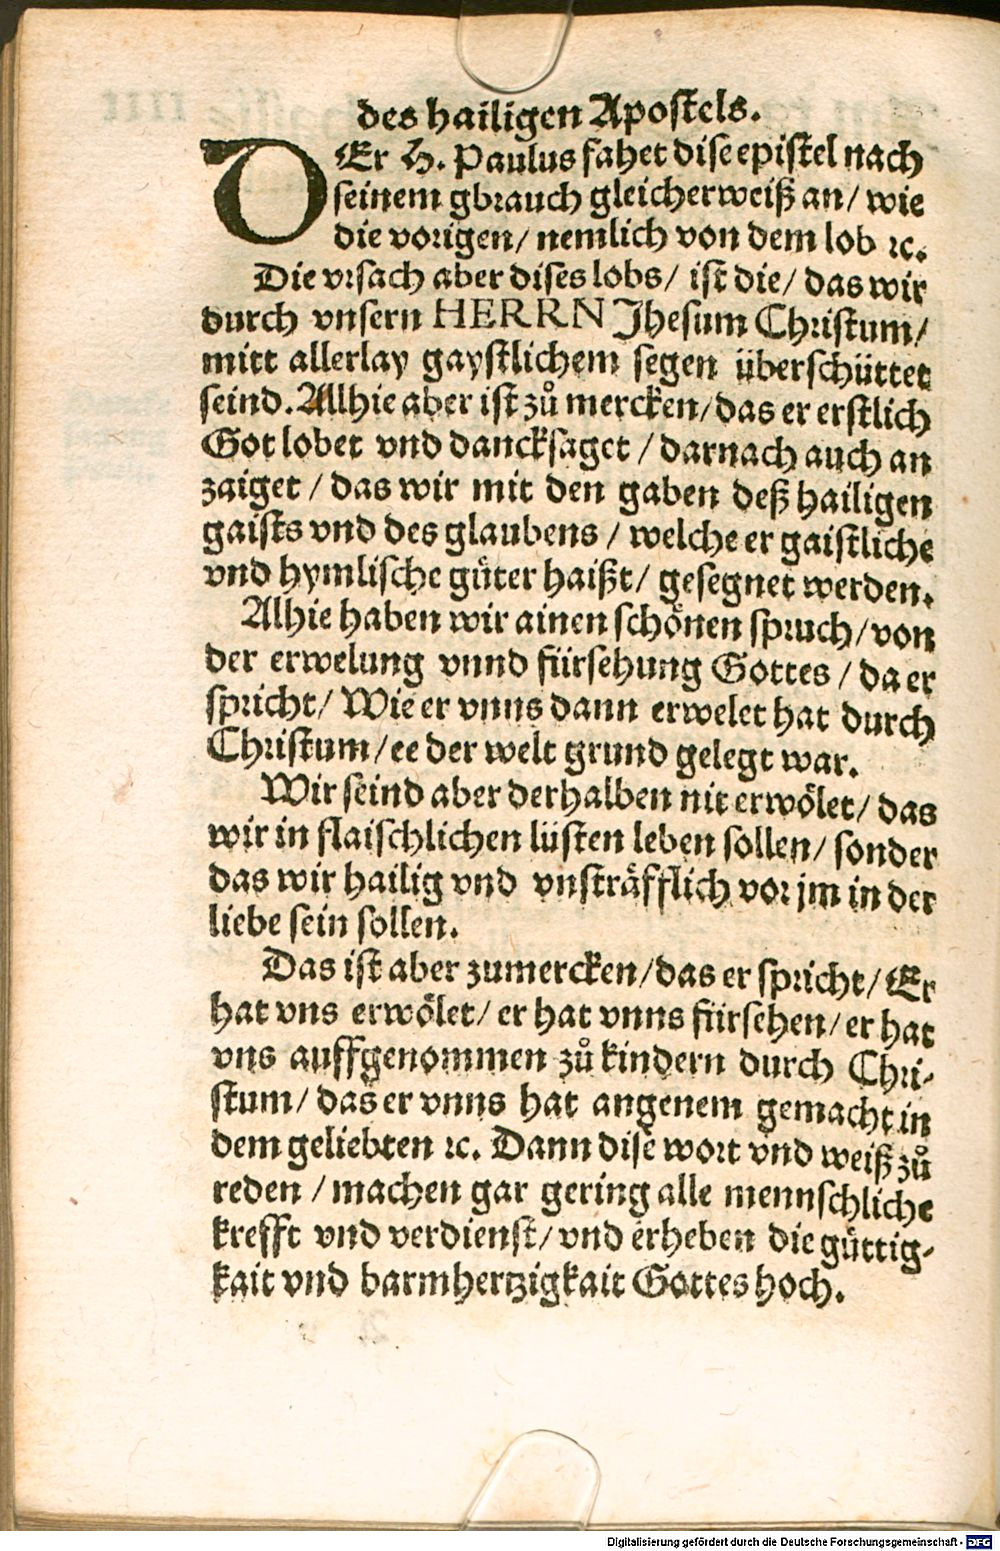 des hailigen Apostels.
DEr H. Paulus fahet dise epistel nach
seinem gbrauch gleicherweiß an/ wie
die vorigen/ nemlich von dem lob ꝛc.
Die vrsach aber dises lobs/ ist die/ das wir
durch vnsern HERRN Jhesum Christum/
mitt allerlay gaystlichem segen überschüttet
seind. Allhie aber ist zů mercken/ das er erstlich
Got lobet vnd dancksaget / darnach auch an
zaiget / das wir mit den gaben deß hailigen
gaists vnd des glaubens / welche er gaistliche
vnd hymlische gůter haißt/ gesegnet werden.
Alhie haben wir ainen schönen spruch/ von
der erwelung vnnd fürsehung Gottes / da er
spricht/ Wie er vnns dann erwelet hat durch
Christum/ ee der welt grund gelegt war.
Wir seind aber derhalben nit erwölet/ das
wir in flaischlichen lüsten leben sollen/ sonder
das wir hailig vnd vnsträfflich vor jm in der
liebe sein sollen.
Das ist aber zumercken/ das er spricht/ Er
hat vns erwölet/ er hat vnns fürsehen/ er hat
vns auffgenommen zů kindern durch Chri-
stum/ das er vnns hat angenem gemacht in
dem geliebten ꝛc. Dann dise wort vnd weiß zů
reden / machen gar gering alle mennschliche
krefft vnd verdienst/ vnd erheben die güttig-
kait vnd barmhertzigkait Gottes hoch.
Digitalisierung gefördert durch die Deutsche Forschungsgemeinschaft - DFG